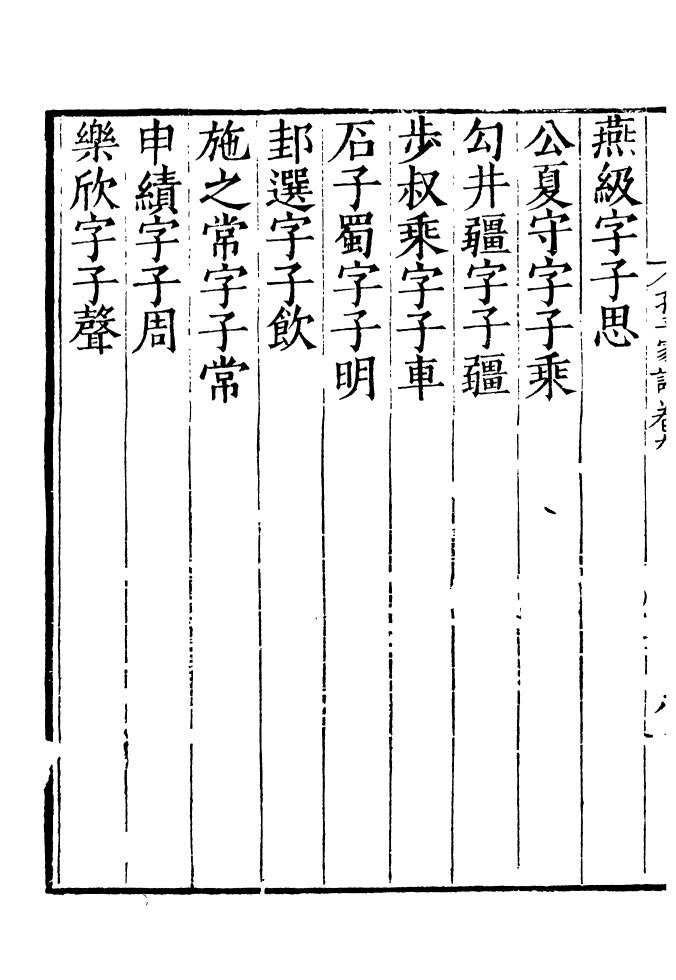 燕級字子思
公夏守字子乘
勾井疆字子疆
步叔乘字子車
石子蜀字子明
邽選字子飲
施之常字子常
申績字子周
樂欣字子聲